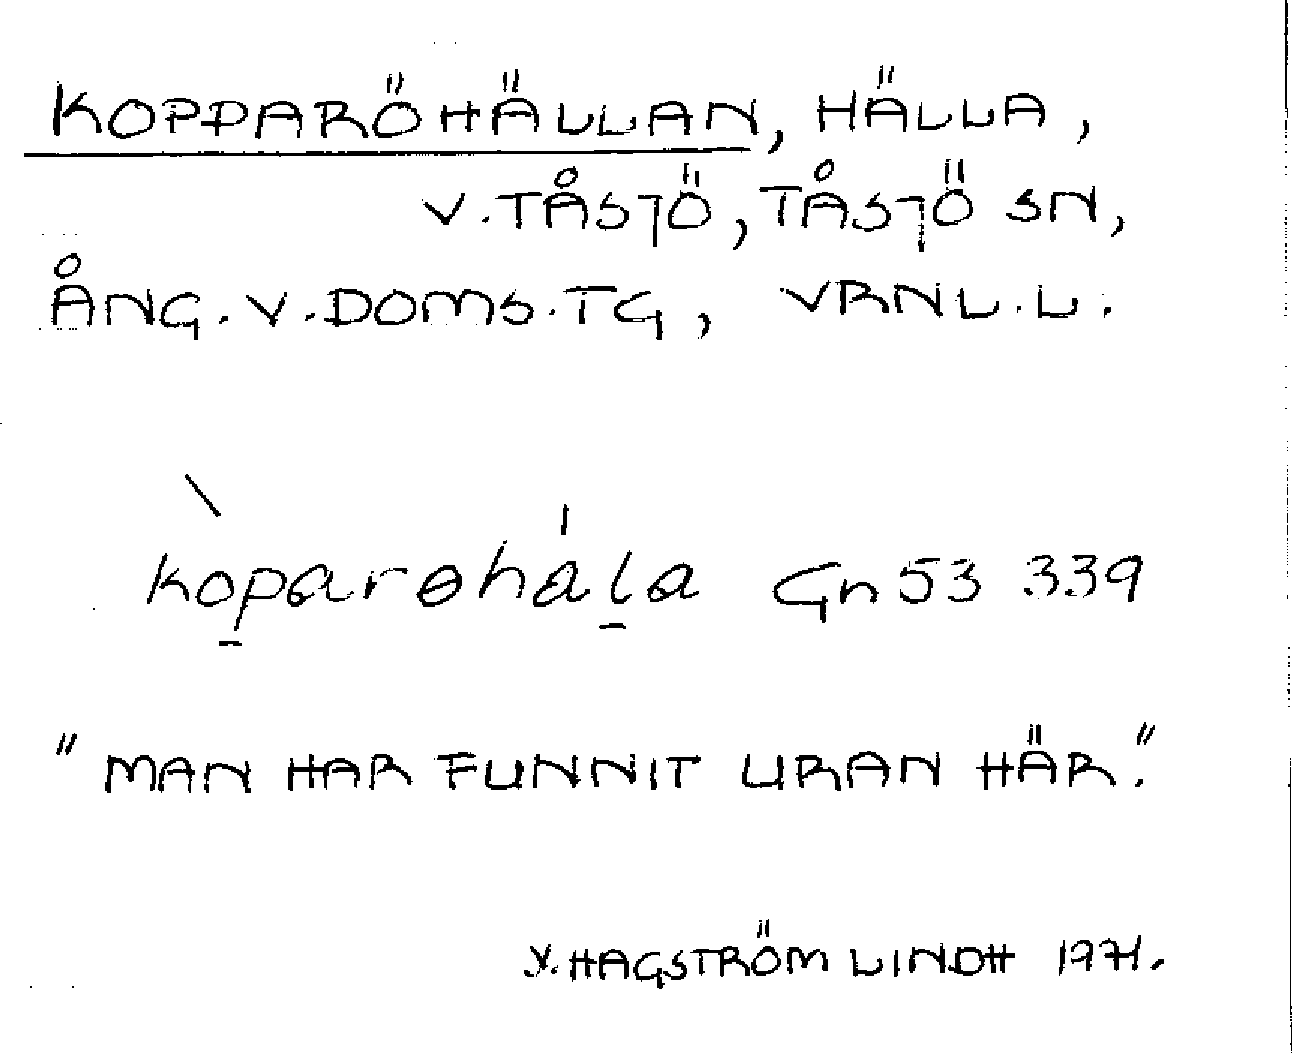 KOPPARÖHÄLLAN, HÄLLA,
V. TÅSJÖ, TÅSJÖ SN,
ÅNG. V. DOMS. TG, VRNL. L.
kòparɵhála Gn 53 339
"MAN HAR FUNNIT URAN HÄR."
Y. HAGSTRÖM LINDH 1971.